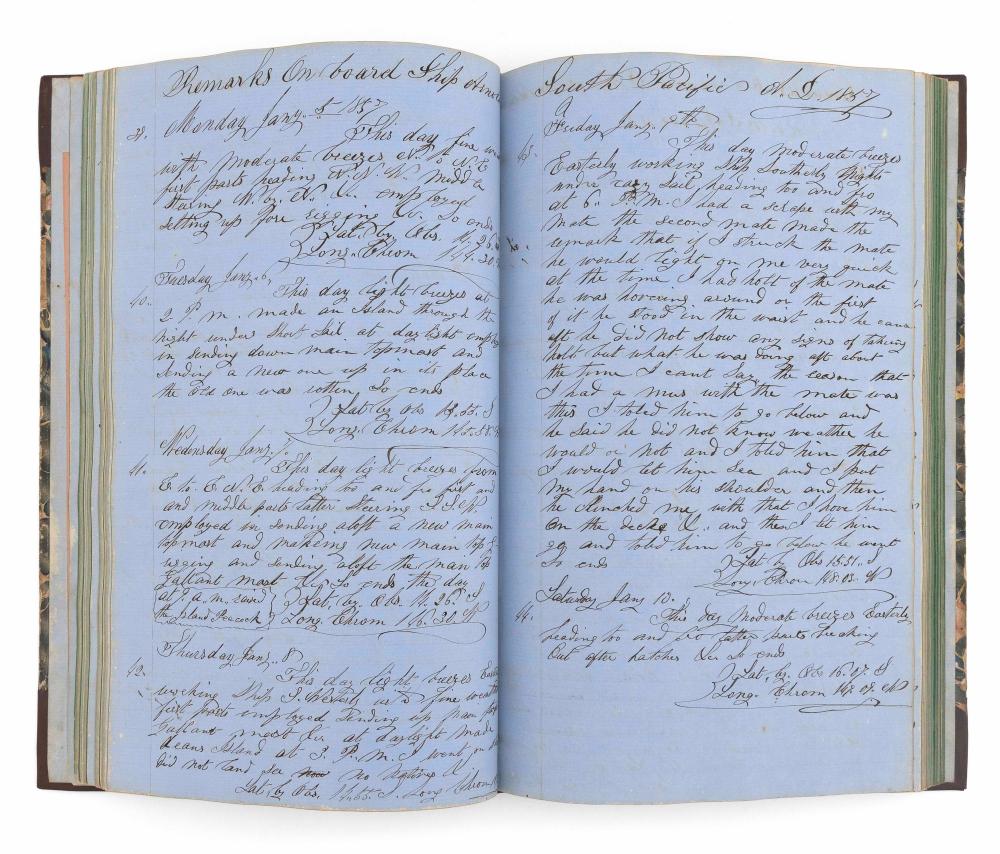 Remarks On board Ship
Monday Jany. 5th 1857
39. This day fine
with moderate breezes N. to N. E
first parts heading N. N. W. Middle
Stearing W. by. N. &c. employed
setting up fore rigging &c. So ends
Lat. by Obs. 14. 26.
Long. Chrom 144. 30.
Tuesday Jany. 6,
40. This day light breezes at
2 P. m. made an Island through the
night under Short Sail at daylight
in sending down main topmast and
sending a new one up in its place
the old one was rotten So ends
Lat. by Obs S
Long. Chrom
Wednesday Jany. 7.
41. This day light breezes from
E to E. N. E. heading too and fro first and
and middle parts latter stearing
employed in sending aloft a new main
topmast and makeing new main top
rigging and sending aloft the main top
Gallant mast &c. So ends the day
at 9 a. m. raised Lat. by. Obs. 14. 26. S
the Island Peacock Long. Chrom 146. 30. W
Thursday Jany. 8
42. This day light breezes
working Ship fine weather
first parts employed sending up main top
Gallant mast &c. at daylight made
Deans Island at 3. P. M. I went on
did not land see no natives &c.
Lat. by Obs. S. Long Chrom
South Pacific A. D. 1857
Friday Jany. 9th
43. This day moderate breezes
Easterly working Ship Southerly
under easy Sail heading too and fro
at 6. P. M. I had a scrape with my
mate the second mate made the
remark that if I struck the mate
he would light on me very quick
at the time I had holt of the mate
he was hovering around on the first
of it he stood in the waist and he came
aft he did not show any signs of taking
holt but what he was doing aft about
the time I cant say the reason that
I had a mus with the mate was
this I toled him to go below and
he said he did not know weather he
would or not and I toled him that
I would let him See and I put
my hand on his shoulder and then
he clinched me, with that I hove him
on the deck &c. and then I let him
go and told him to go below he went
So ends Lat by Obs 15. 51. S
Long. Chrom 148. 03. W
Saturday Jany 10.
44. This day Moderate breezes Easterly
heading too and fro latter parts breaking
out after hatches &c. So ends
Lat. by. Obs 16. 07. S
Long. Chrom 148. 08. W